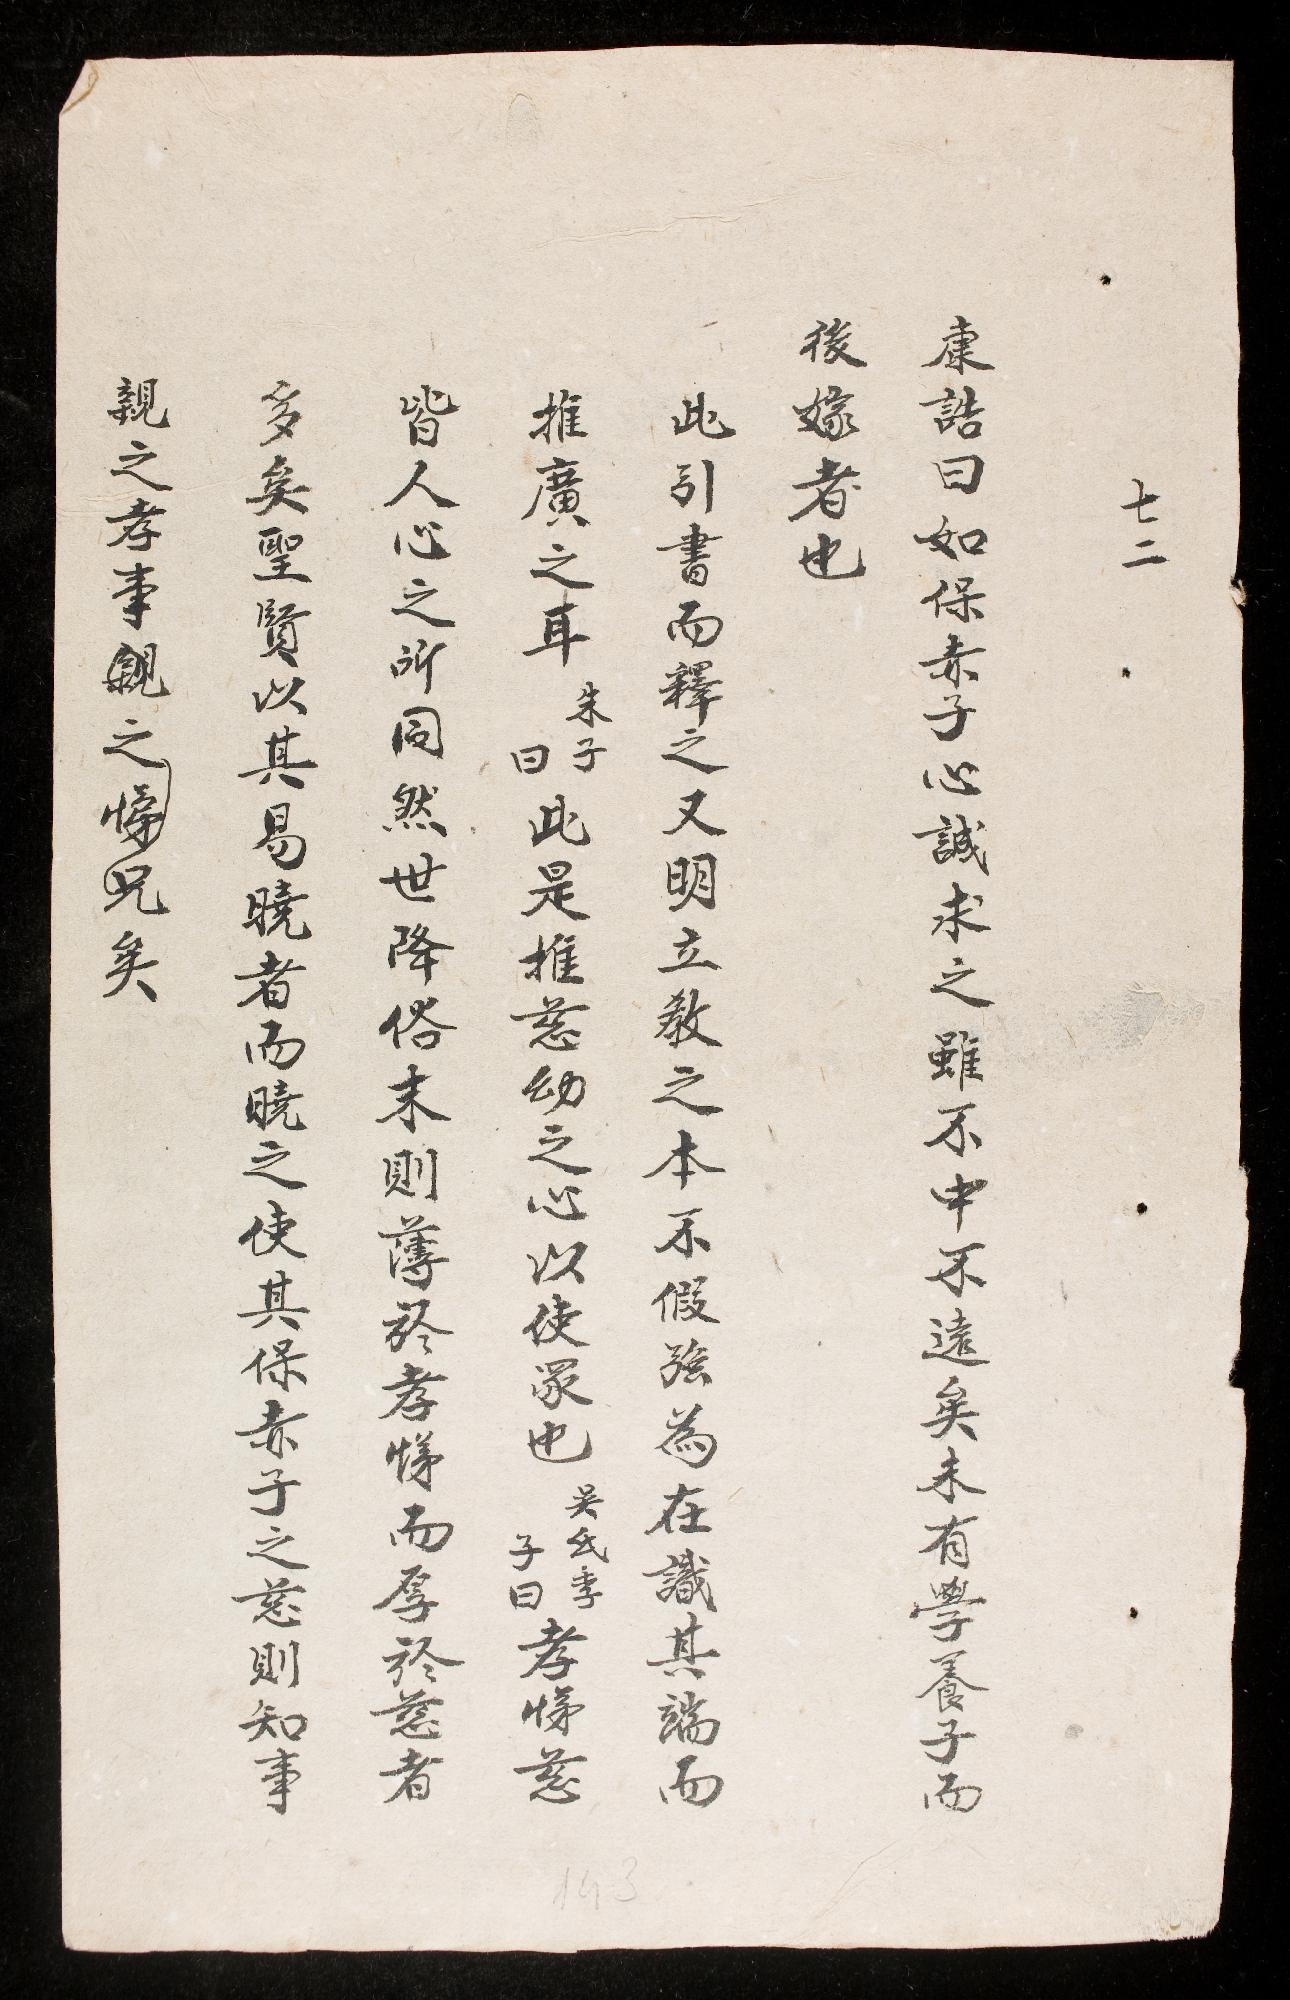 七二
康誥曰如保赤子心誠求之雖不中不遠矣未有學養子而
後嫁者也
此引書而釋之又明立教之本不假強為在識其端而
推廣之耳朱子曰此是推慈幼之心以使衆也吳氏季子曰孝悌慈
皆人心之所同然世降俗末則薄於孝悌而厚於慈者
多矣聖賢以其易曉者而曉之使其保赤子之慈則知事
親之孝事親之悌兄矣
143